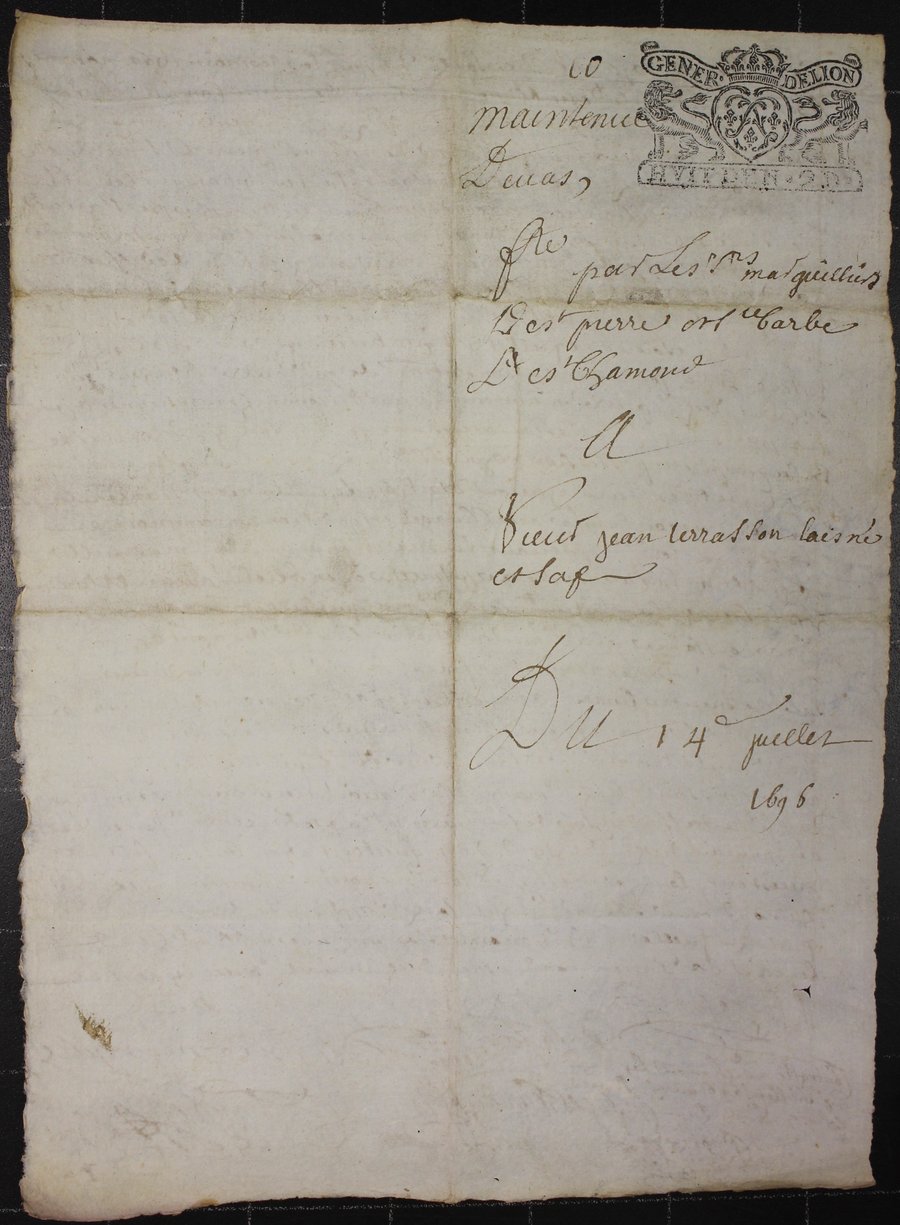 10
GENER· DELION
maintenue
HVIT DEN · 2 D ·
Deuas,
fte
par Les Srs marguilliers
De st pierre et ste barbe
De st Chamond
A
Sieur jean terrasson laisné
et sa fe
Du 14e juillet
1696